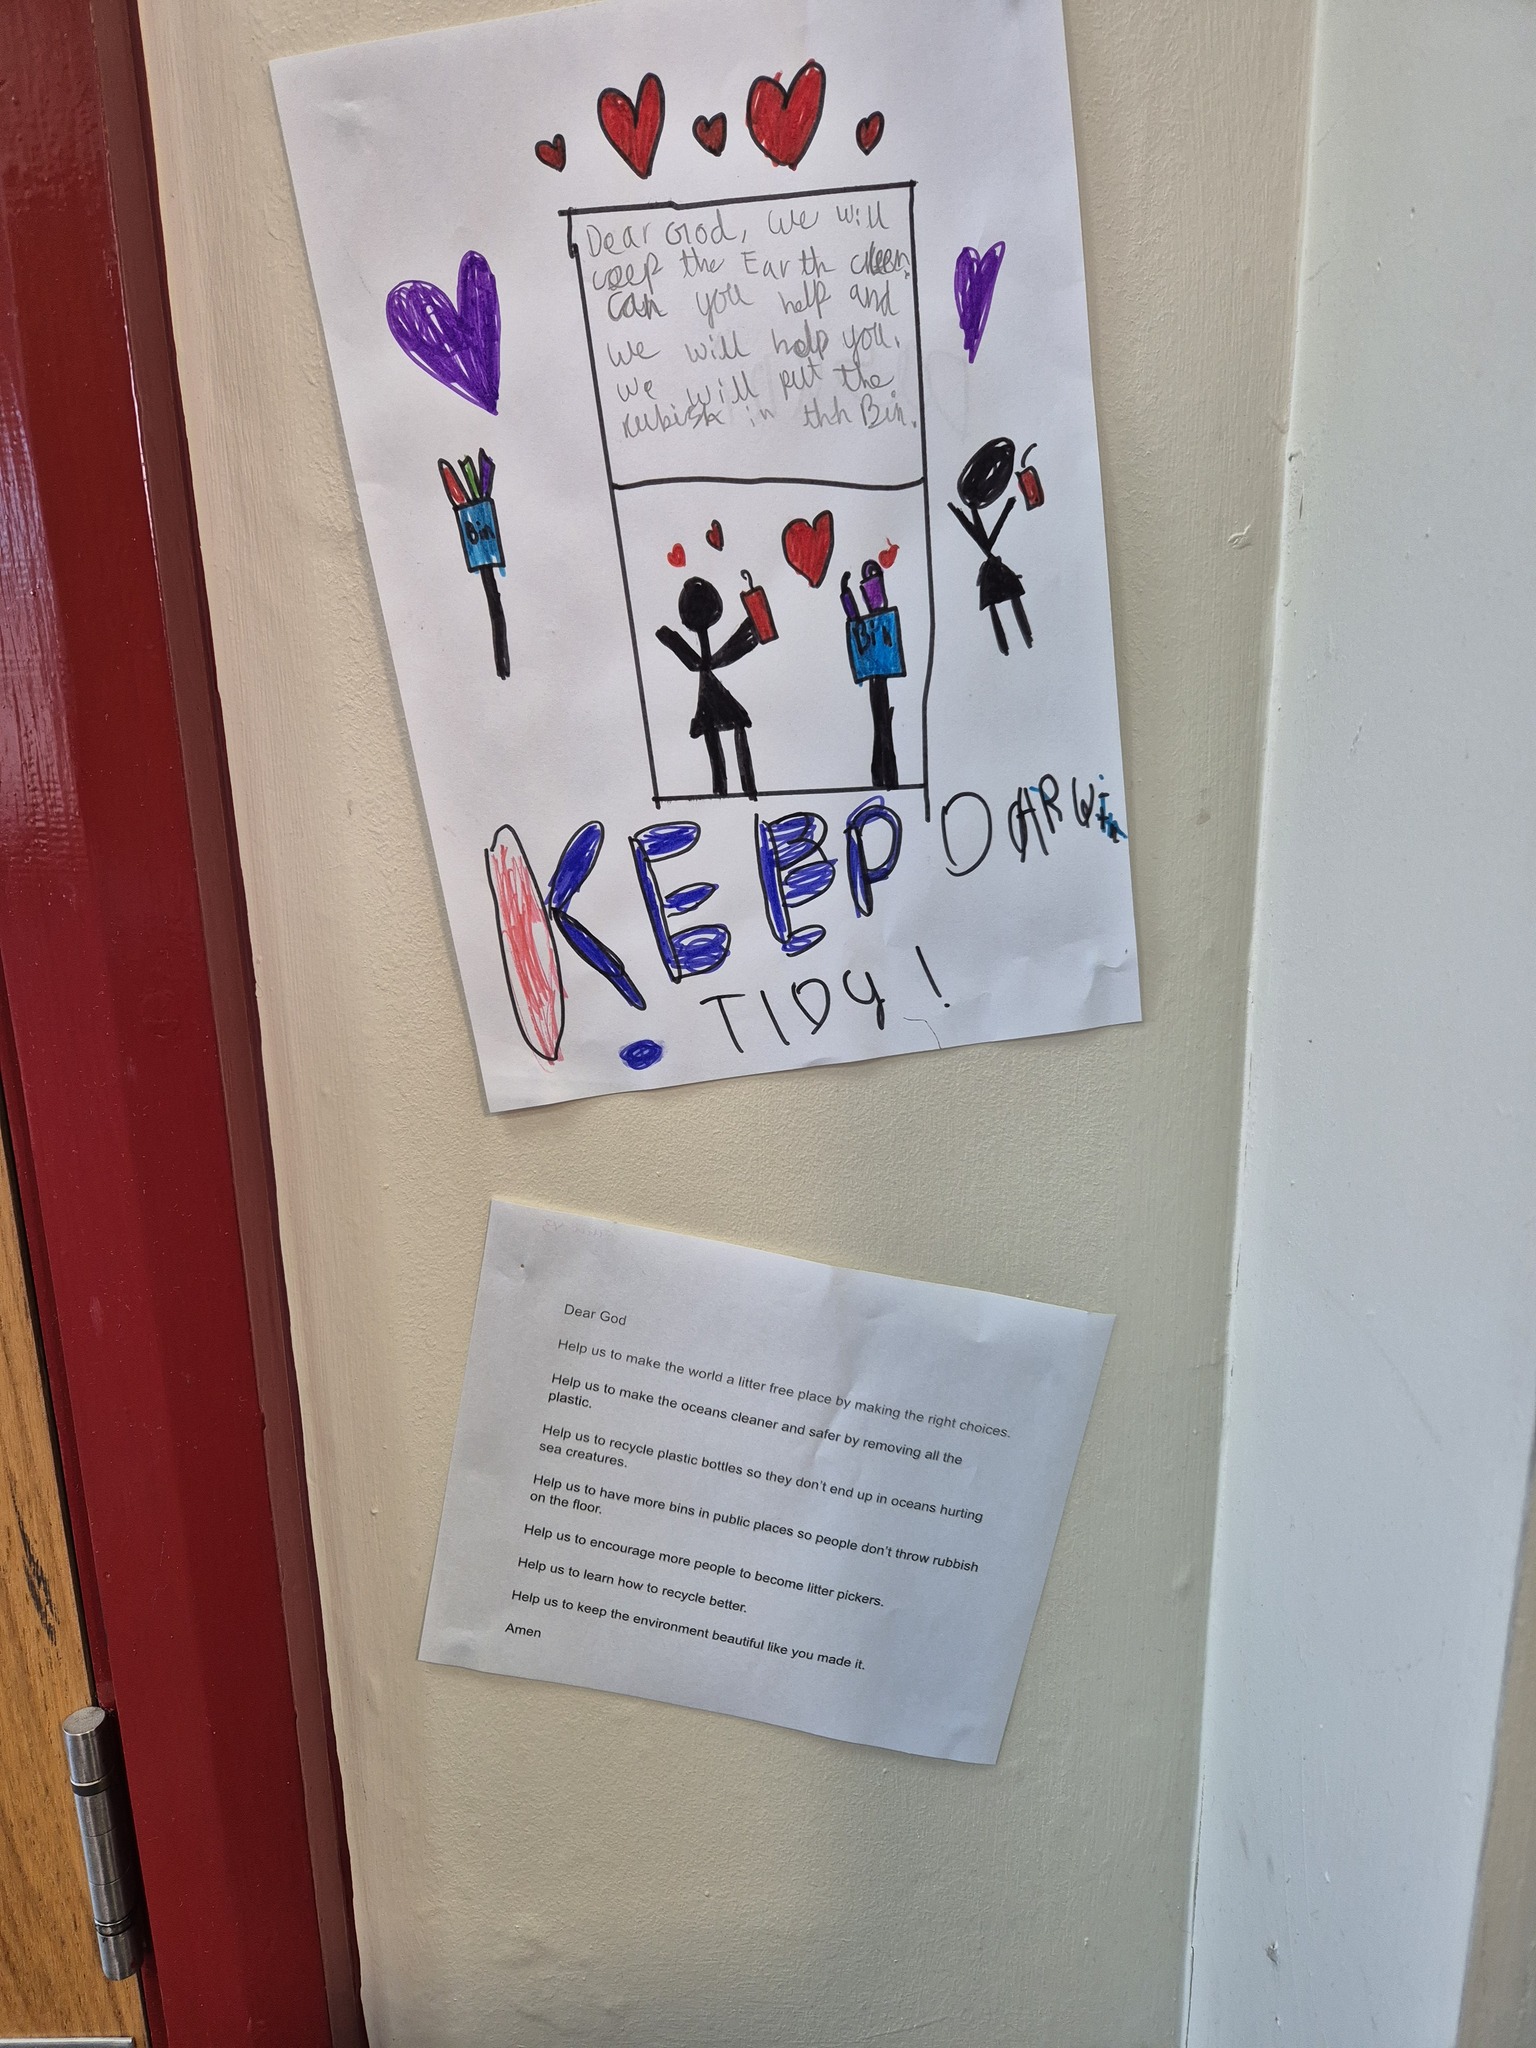 Dear God, we will
ceep the Earth clean.
can you help and
we will help you.
we will put the
rubish in thh Bin.
Bin
Bin
KEEP DARWin
TIDY!
Dear God
Help us to make the world a litter free place by making the right choices.
Help us to make the oceans cleaner and safer by removing all the
plastic.
Help us to recycle plastic bottles so they don't end up in oceans hurting
sea creatures.
Help us to have more bins in public places so people don't throw rubbish
on the floor.
Help us to encourage more people to become litter pickers.
Help us to learn how to recycle better.
Help us to keep the environment beautiful like you made it.
Amen